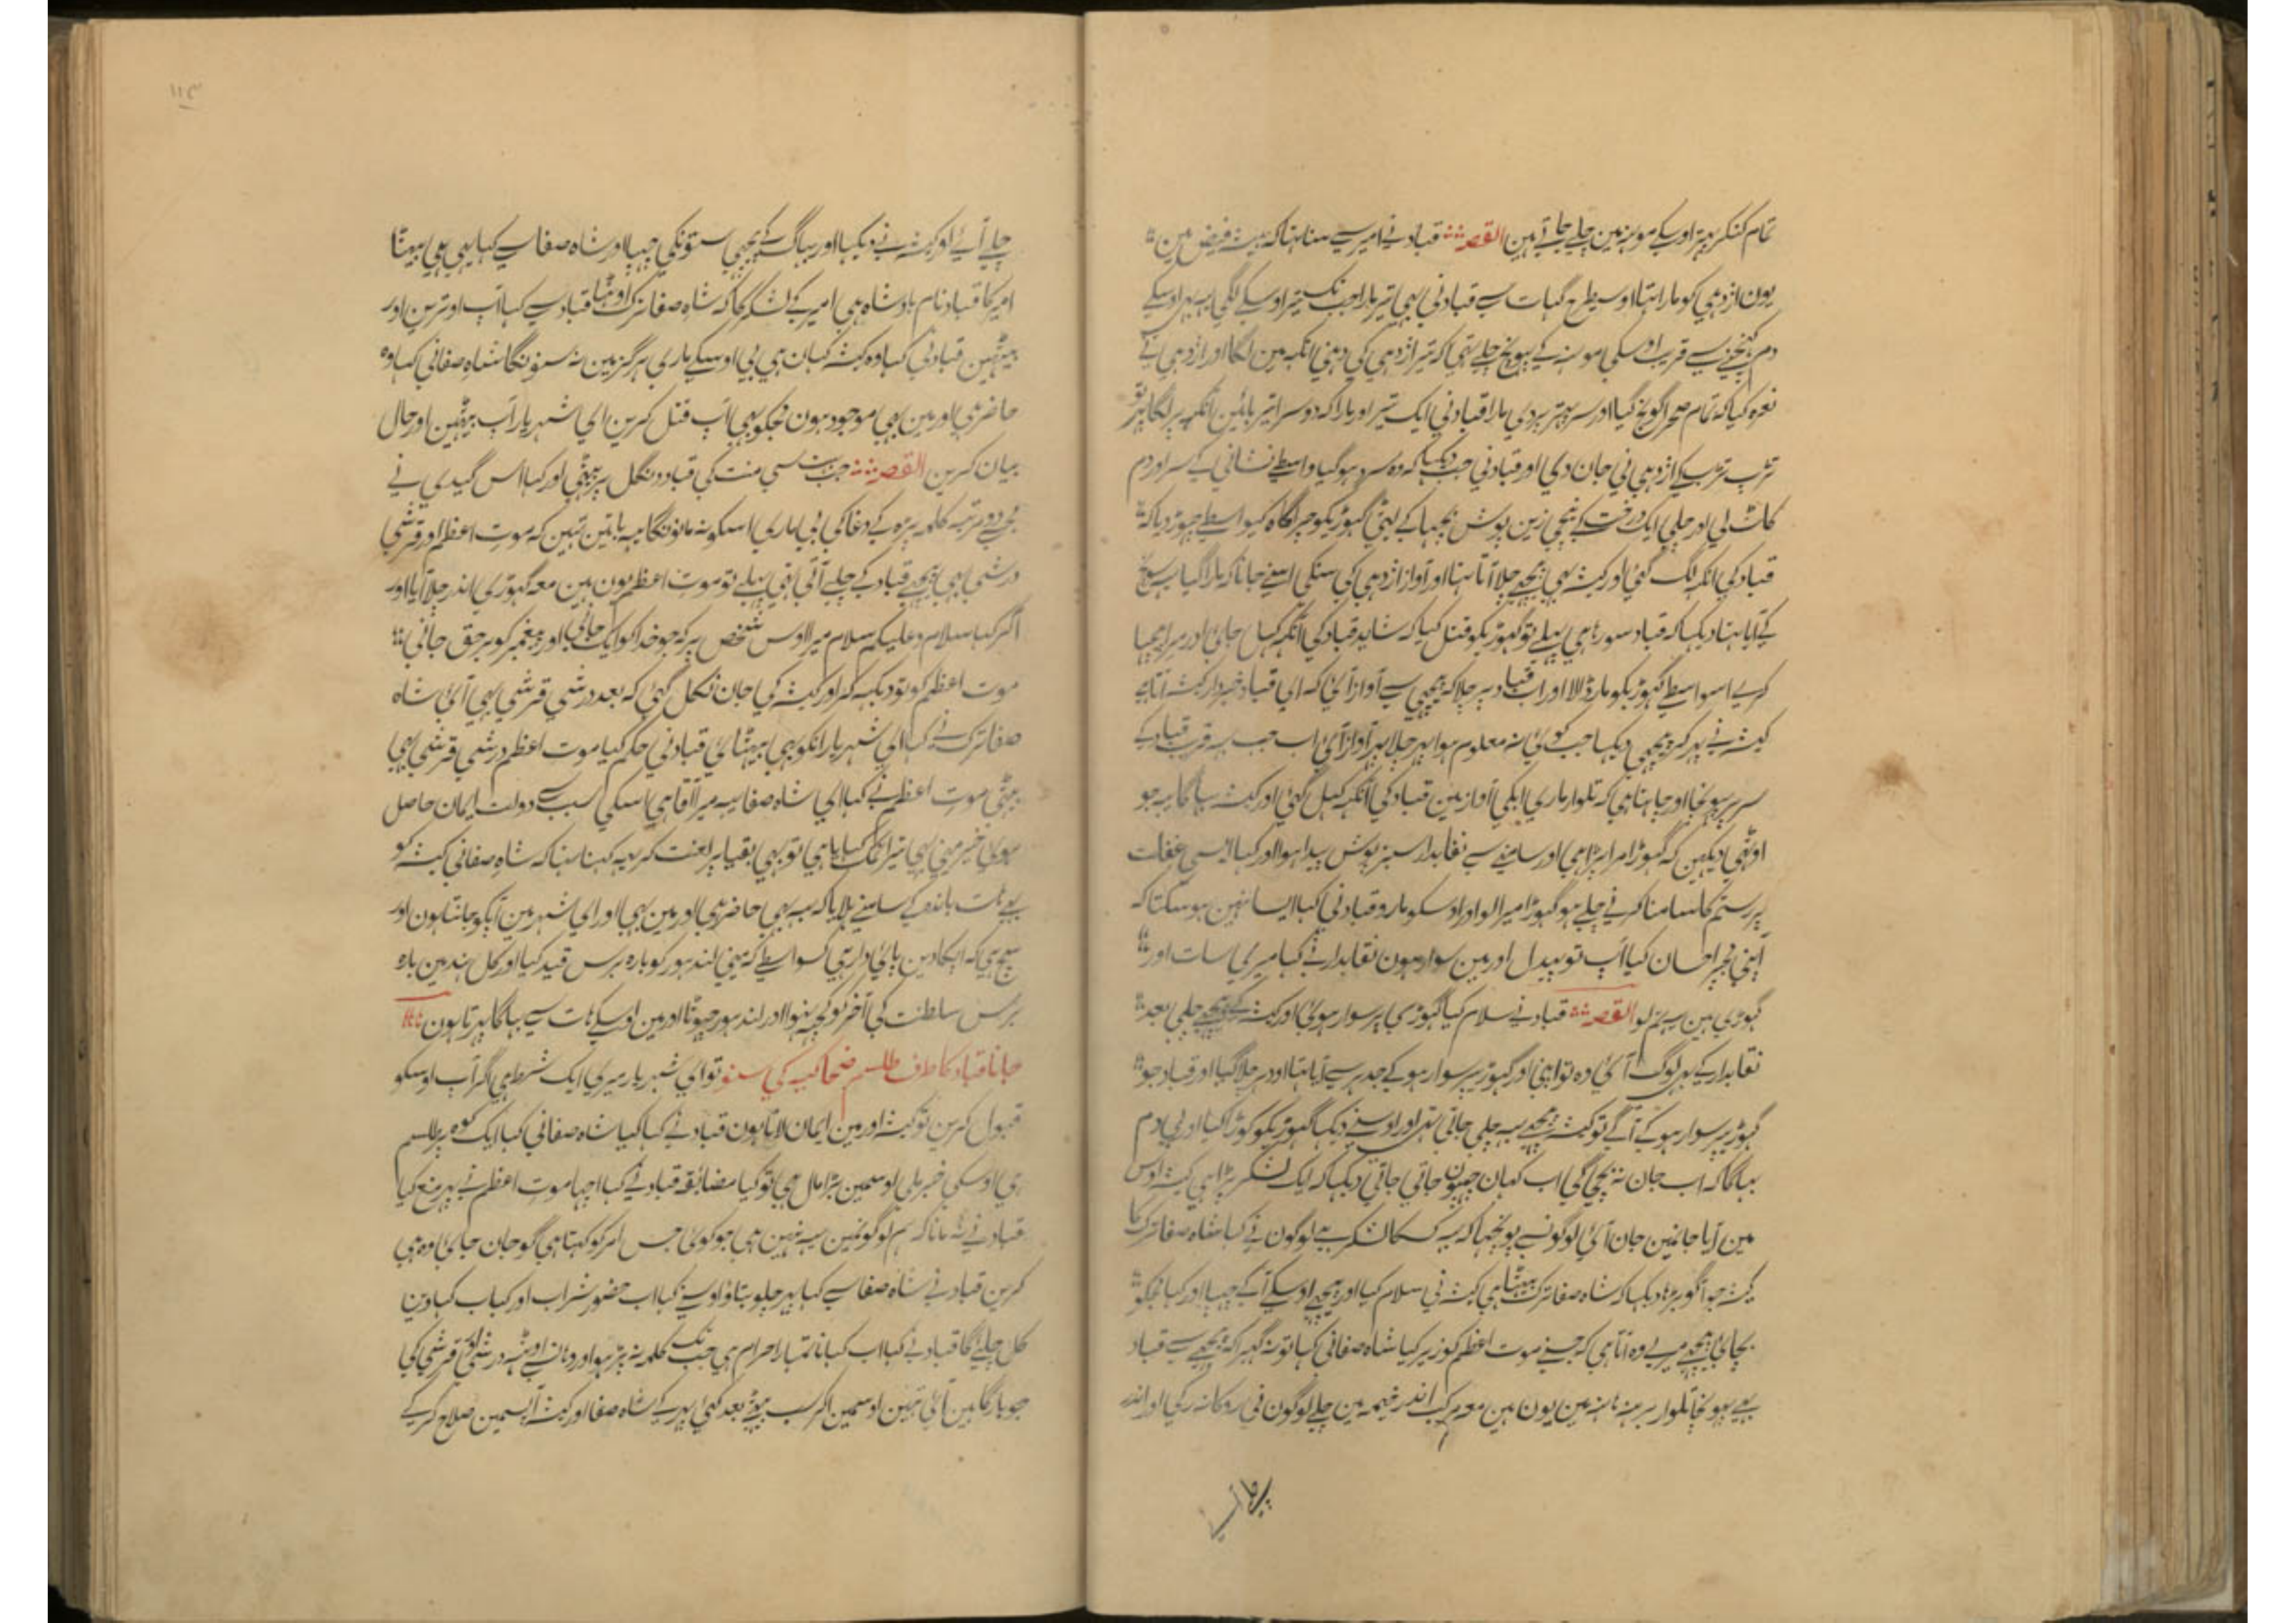 تمام کنکر پتہر اوسکے مونہہ مین چلے جاتے ہین القصہ قباد نے امیر سے سنا تہا کہ بیشہ فیض مین
یون اژدہی کو مارا تہا اوسیطرح گہات سے قبادنی بہی تیر مارا جب تک تیر اوسکے لگی یہ بہی اوسکے
دم کہنچنے سے قریب اوسکی مونہہ کے پہونچ چلے تہی کہ تیر اژدہی کی دہنی آنکہہ مین لگا اور اژدہی نے
نعرہ کیا کہ تمام صحرا گونج گیا اور سر پتہر پر دی مارا قبادنی ایک تیر اور مارا کہ دوسرا تیر بائین آنکہہ پر لگا پہر تو
تڑپ تڑپ کے اژدہی نی جان دی اور قبادنی جب دیکہا کہ وہ سرد ہوگیا واسطے نشانی کے سر اور دم
کاٹ لی اور چلی ایک درخت کے نیچی زین پوش بچہا کے لیٹی گہوڑیکو چراگاہ کیواسطے چہوڑ دیا کہ
قباد کی آنکہہ لگ گئی اور کیشہ بہی پیچہے چلا آتا تہا اور آواز اژدہی کی سنکی اسنے جانا کہ مارا گیا یہ سوچ
کے آیا تہا دیکہا کہ قباد سوتا ہی پہلے تو گہوڑیکو قتل کیا کہ شاید قباد کی آنکہہ کہل جائی اور میرا پیچہا
کرے اسواسطے گہوڑیکو مار ڈالا اور اب قباد پر چلا کہ پیچہی سے آواز آئی کہ ای قباد خبردار کیشہ آتا ہے
کیشہ نے پہر کر پیچہی دیکہا جب کوئی نہ معلوم ہوا پہر چلا پہر آواز آئی اب جب یہ قریب قباد کے
سر پر پہونچا اور چاہتا ہی کہ تلوار ماری ابکی آواز مین قباد کی آنکہہ کہل گئی اور کیشہ بہاگا یہ جو
اوٹہی دیکہین کہ گہوڑا مرا پڑا ہی اور سامنے سے نقابدار سبز پوش پیدا ہوا اور کہا ایسی غفلت
پر رستم کا سامنا کرنے چلے ہو گہوڑا میرا لو اور اوسکو مارو قبادنی کہا ایسا نہین ہو سکتا کہ
آپنی مجہپر احسان کیا آپ تو پیدل اور مین سوار ہون نقابدار نے کہا میری سات اور
گہوڑی ہین یہ تم لو القصہ قباد نے سلام کیا گہوڑی پر سوار ہوئی اور کیشہ کے پیچہے چلی بعد
نقابدار کے بہی لوگ آئی وہ تو اپنی اور گہوڑیپر سوار ہو کے جدہر سے آیا تہا اودہر چلا گیا اور قباد جو
گہوڑیپر سوار ہو کے آگے تو کیشہ پیچہے یہ چلی جاتی تہی اور اوسنے دیکہا گہوڑیکو کوڑا کیا اور بی دم
بہاگا کہ اب جان نہ بچی گی اب کہان چہپون جاتی جاتی دیکہا کہ ایک لشکر پڑا ہی کیشہ اوس
مین آیا جانمین جان آئی لوگونسے پونچہا کہ یہ کسکا لشکر ہے لوگون نے کہا شاہ صفا ترک کا
کیشہ جو آگو بڑہا دیکہا کہ شاہ صفا ترک بیٹہا ہی کیشہ نی سلام کیا اور پیچہے اوسکے آکے چہپا اور کہا مجکو
بچائی پیچہے میرے وہ آتا ہی کہ جسنے موت اعظم کو زیر کیا شاہ صفانی کہا تو نہ گہبرا کہ پیچہے سے قباد
بہی پہونچا تلوار برہنہ ہاتہہ مین یون ہین معہ مرکب اندر خیمہ مین چلے لوگون نی روکا نہ رکی اور اندر
چلے آئے
چلے آئے اور کیشہ نے دیکہا اور بہاگ کے پیچہی ستونکی چہپا اور شاہ صفا سے کہا یہی ہی بیٹا
امیر کا قباد نام بادشاہ ہی امیر کے لشکر کا کہ شاہ صفا ترک اوٹہا قباد سے کہا آپ اوترین اور
بیٹہین قبادنی کہا وہ کیشہ کہان ہی بی اوسکے ماری ہرگز مین نہ سنونگا شاہ صفانی کہا وہ
حاضر ہی اور مین بہی موجود ہون مجکو بہی آپ قتل کرین ای شہریار آپ بیٹہین اور حال
بیان کرین القصہ جب بہت سی منت کی قباد دنگل پر بیٹہی اور کہا اس گیدی نے
مجہے دو مرتبہ کلمہ پڑہ کے دغا کی بی ماری اسکو نہ مانونگا یہہ باتین تہین کہ موت اعظم اور قرشمی
درشمی بہی پیچہے قباد کے چلے آتی تہی پہلے تو موت اعظم یون ہین معہ گہوڑی اندر چلا آیا اور
آکر کہا سلام و علیکم سلام میرا اوس شخص پر کہ جو خدا کو ایک جانی اور پیغمبر کو برحق جانی
موت اعظم کو تو دیکہہ کر اور کیشہ کی جان نکل گئی کہ بعد درشمی قرشمی بہی آئی شاہ
صفا ترک نے کہا ای شہریار انکو بہی بیٹہائی قبادنی حکم کیا موت اعظم درشمی قرشمی بہی
بیٹہی موت اعظم نے کہا ای شاہ صفا یہہ میرا آقا ہی اسکی سبب سے دولت ایمان حاصل
ہوئی خیر مینی بہی تیرا نمک کہایا ہی تو بہی بقیا پر لعنت کر یہہ کہنا تہا کہ شاہ صفانی کیشہ کو
بہی ہات باندہ کے سامنے بلایا کہ یہ بہی حاضر ہی اور مین بہی اور ای شہر مین آپکو جانتا ہون اور
سچ ہی کہ آپکا دین پائی دار ہی کسواسطے کہ مینی لندہور کو بارہ برس قید کیا اور کل ہند مین بارہ
برس سلطنت کی آخر کو کچہہ نہوا اور لندہور چہوٹا اور مین اوسکے ہات سے بہاگا پہرتا ہون
جانا قباد کا طرف طلسم ضحاکیہ کی سنو تو ای شہریار میری ایک شرط ہی اگر آپ اوسکو
قبول کرین تو کیشہ اور مین ایمان لاتا ہون قباد نے کہا کیا شاہ صفانی کہا ایک کوہ پر طلسم
ہی اوسکی خبر ملی اوسمین بڑا مال ہی تو کیا مضائقہ قباد نے کہا اچہا موت اعظم نے پہر منع کیا
قباد نے نہ مانا کہ ہم لوگونمین یہہ نہین ہی جو کوئی جس امر کو کہتا ہی گو جان جائی وہ ہی
کرین قباد نے شاہ صفا سے کہا پہر چلو بتاؤ اوسنے کہا اب حضور شراب اور کباب کہاوین
کل چلئے گا قباد نے کہا اب کہانا تمہارا حرام ہی جب تک کلمہ نہ پڑہو اور وہانسے اوٹہہ درشمی اور قرشمی کی
جو بارگاہین آئی تہین اوسمین آکر سب بیٹہے بعد کہی پہر کے شاہ صفا اور کیشہ آپسمین صلاح کر کے